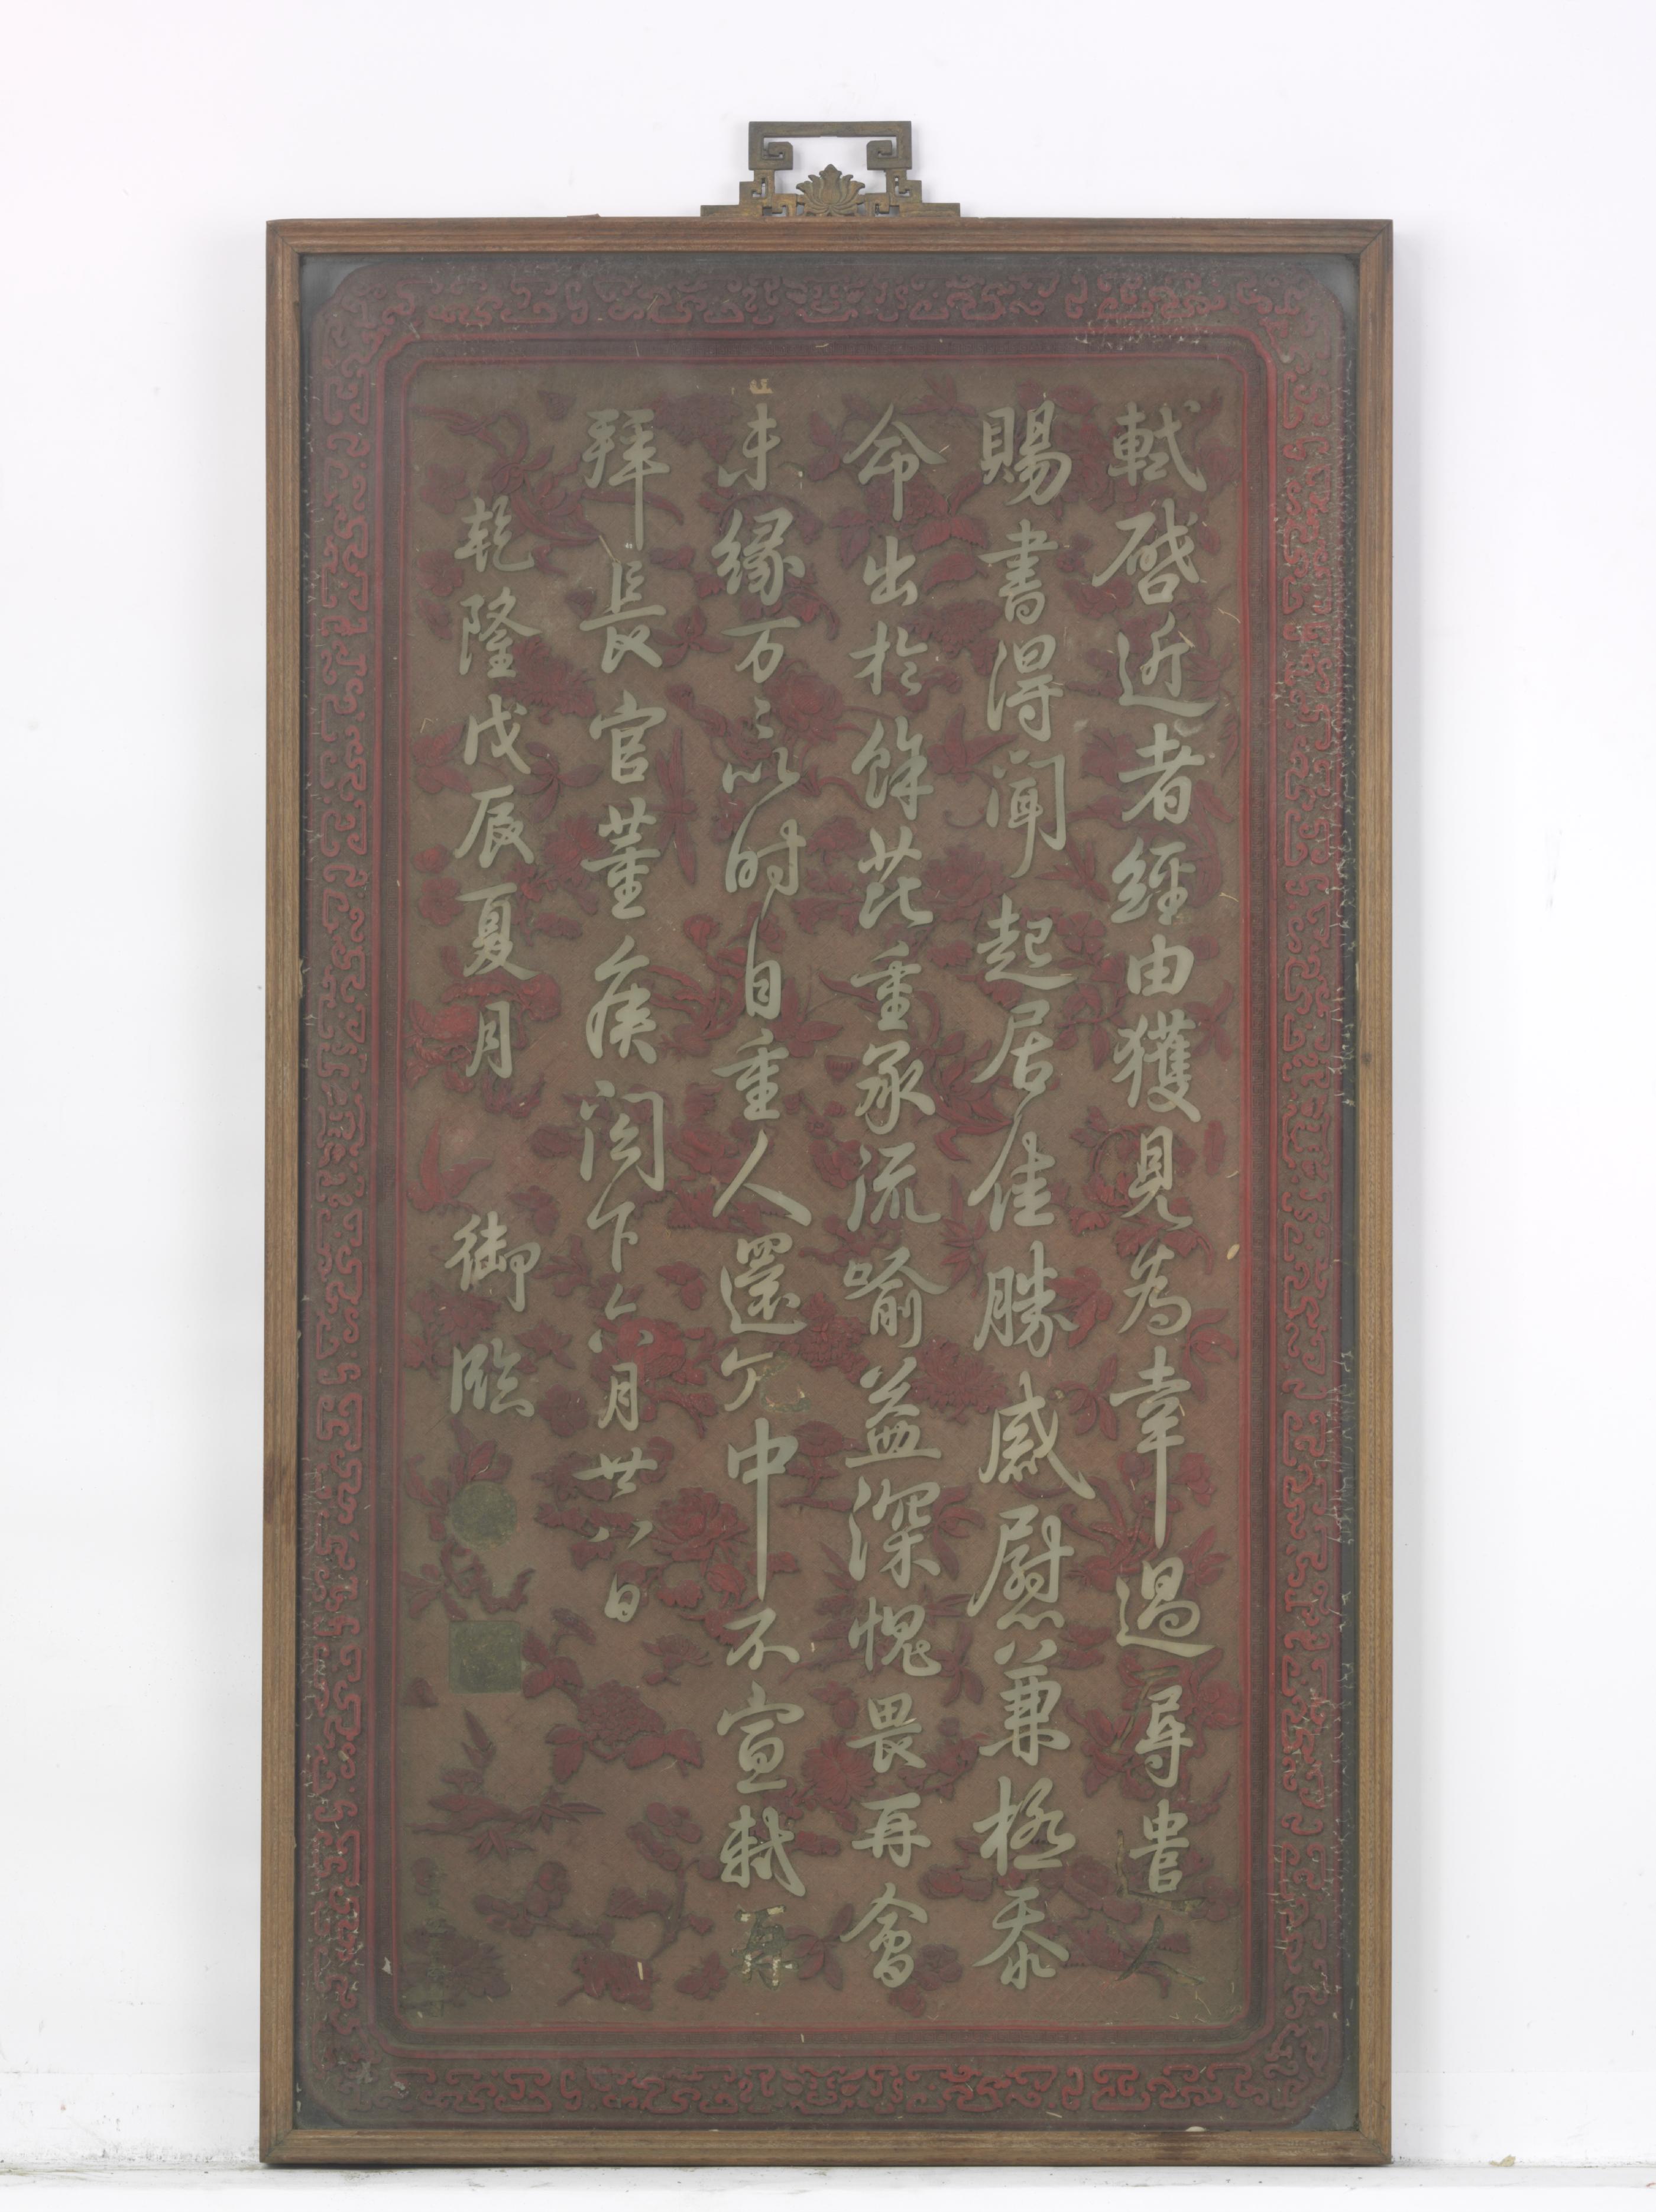 軾啓近者經由獲見為幸過辱遣人
賜書得聞起居佳勝感慰兼極忝
命出於餘芘重承流喻益深愧畏再會
未緣万〻以時自重人還冗中不宣軾再
拜長官董侯閣下六月廿八日
乾隆戊辰夏月 御臨